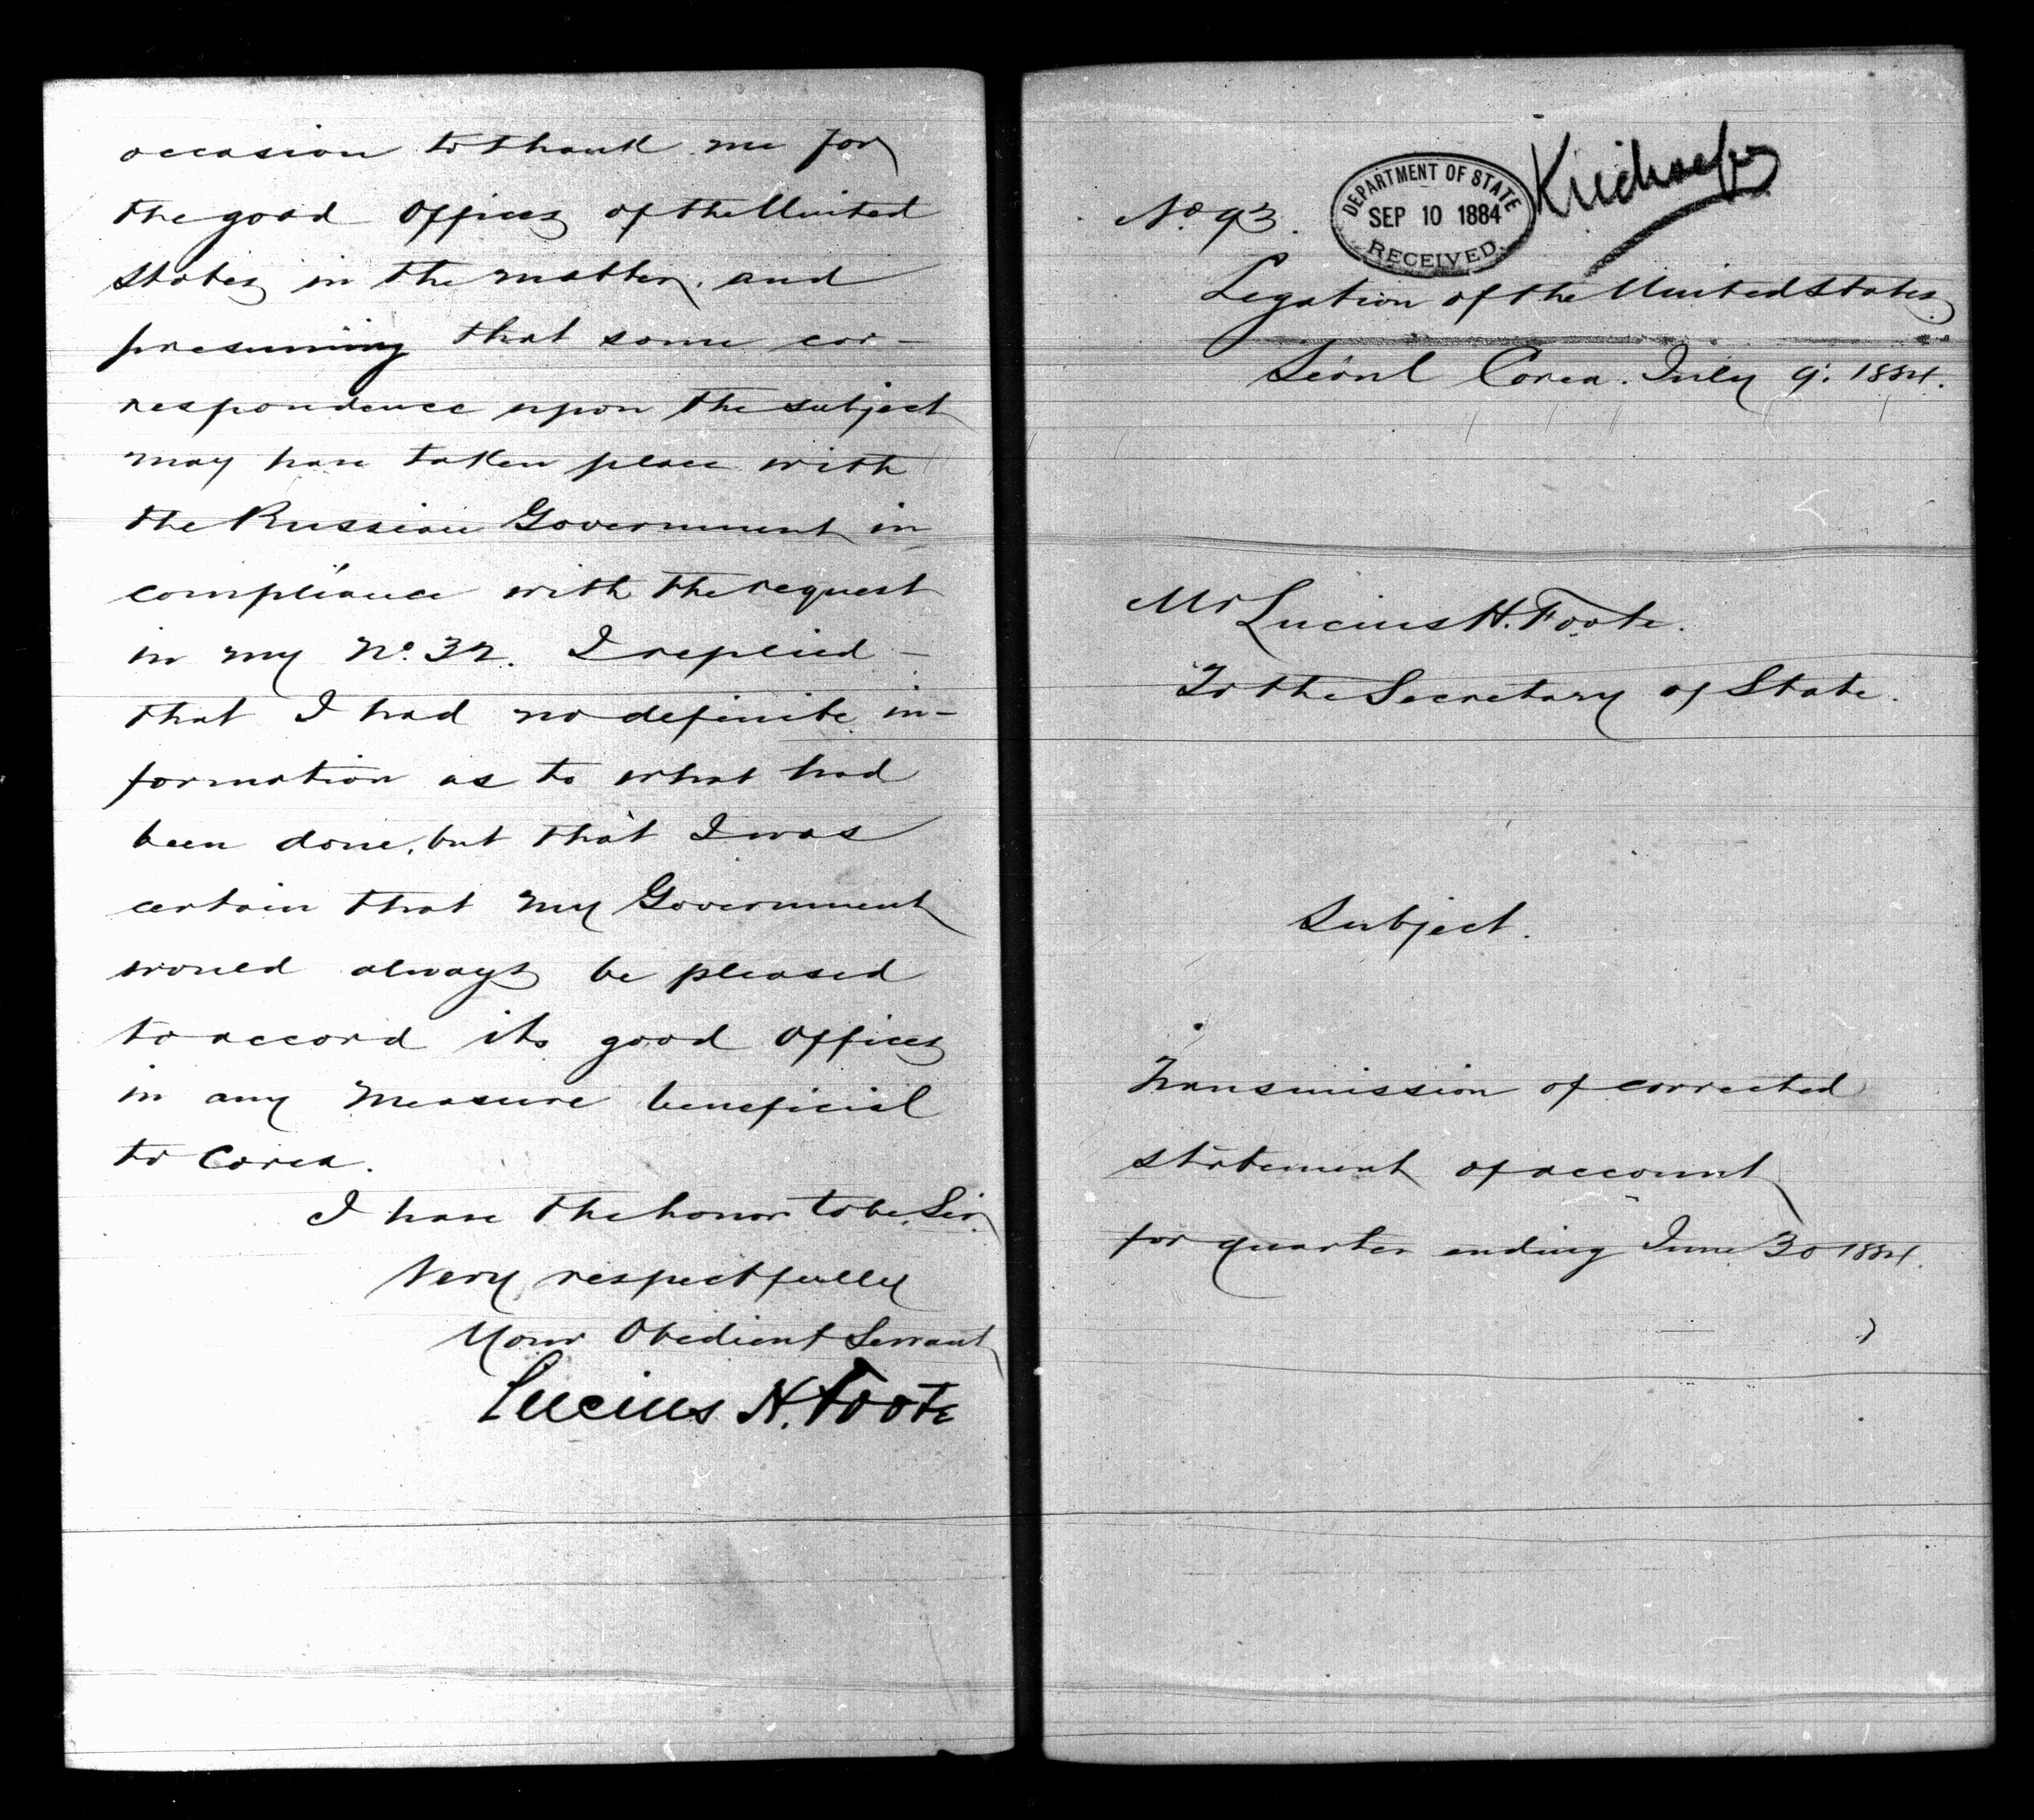 occasion to thank me for
the good Offices of the United
States in the matter, and
presuming that some cor-
respondence upon the subject
may have taken place with
the Russian Government in
compliance with the request
in my No. 32. I replied -
that I had no definite in-
formation as to what had
been done, but that I was
certain that my Government
would always be pleased
to accord its good Offices
in any measure beneficial
to Corea.
I have the honor to be, Sir,
Very respectfully
Your Obedient Servant
Lucius H. Foote
No. 93.
DEPARTMENT OF STATE
SEP 10 1884
RECEIVED
Legation of the United States
Séoul Corea. July 9. 1884.
Mr Lucius H. Foote.
To the Secretary of State.
Subject.
Transmission of corrected
statement of account
for quarter ending June 30 1884.